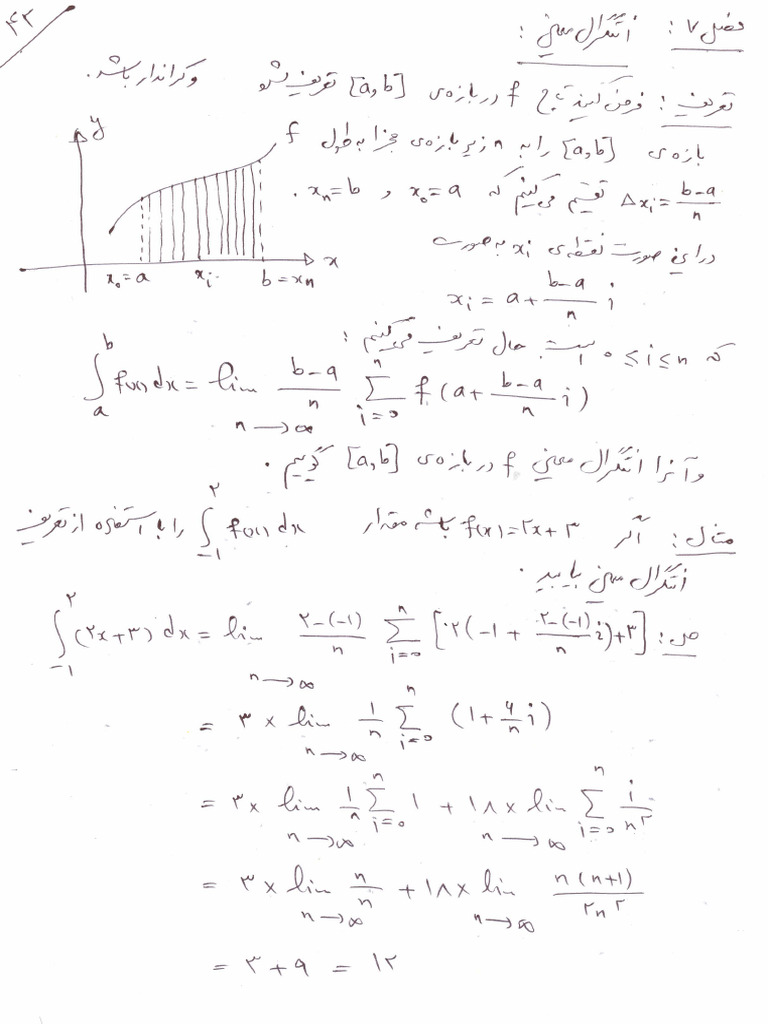 ۴۲
فصل ۷: انتگرال معین:
تعریف: فرض کنید تابع f در بازه‌ی [a,b] تعریف شده و کراندار باشد.
بازه‌ی [a,b] را به n زیر بازه‌ی مجزا به طول
Δxᵢ = (b-a)/n تقسیم می‌کنیم که x₀=a و xₙ=b.
در این صورت نقطه‌ی xᵢ به صورت
xᵢ = a + (b-a)/n i
که 0 ≤ i ≤ n است. حال تعریف می‌کنیم:
y f x x₀=a xᵢ b=xₙ
∫ₐᵇ f(x) dx = lim_{n→∞} (b-a)/n Σ_{i=0}^{n} f(a + (b-a)/n i)
و آنرا انتگرال معین f در بازه‌ی [a,b] گوییم.
مثال: اگر f(x)=۲x+۳ باشد مقدار ∫_{-۱}^{۲} f(x) dx را با استفاده از تعریف
انتگرال معین بیابید.
حل: ∫_{-۱}^{۲} (۲x+۳) dx = lim_{n→∞} (۲-(-۱))/n Σ_{i=0}^{n} [۲(-۱ + (۲-(-۱))/n i)+۳]
= ۳ × lim_{n→∞} ۱/n Σ_{i=0}^{n} (۱ + ۶/n i)
= ۳ × lim_{n→∞} ۱/n Σ_{i=0}^{n} ۱ + ۱۸ × lim_{n→∞} Σ_{i=0}^{n} i/n²
= ۳ × lim_{n→∞} n/n + ۱۸ × lim_{n→∞} n(n+۱)/۲n²
= ۳ + ۹ = ۱۲